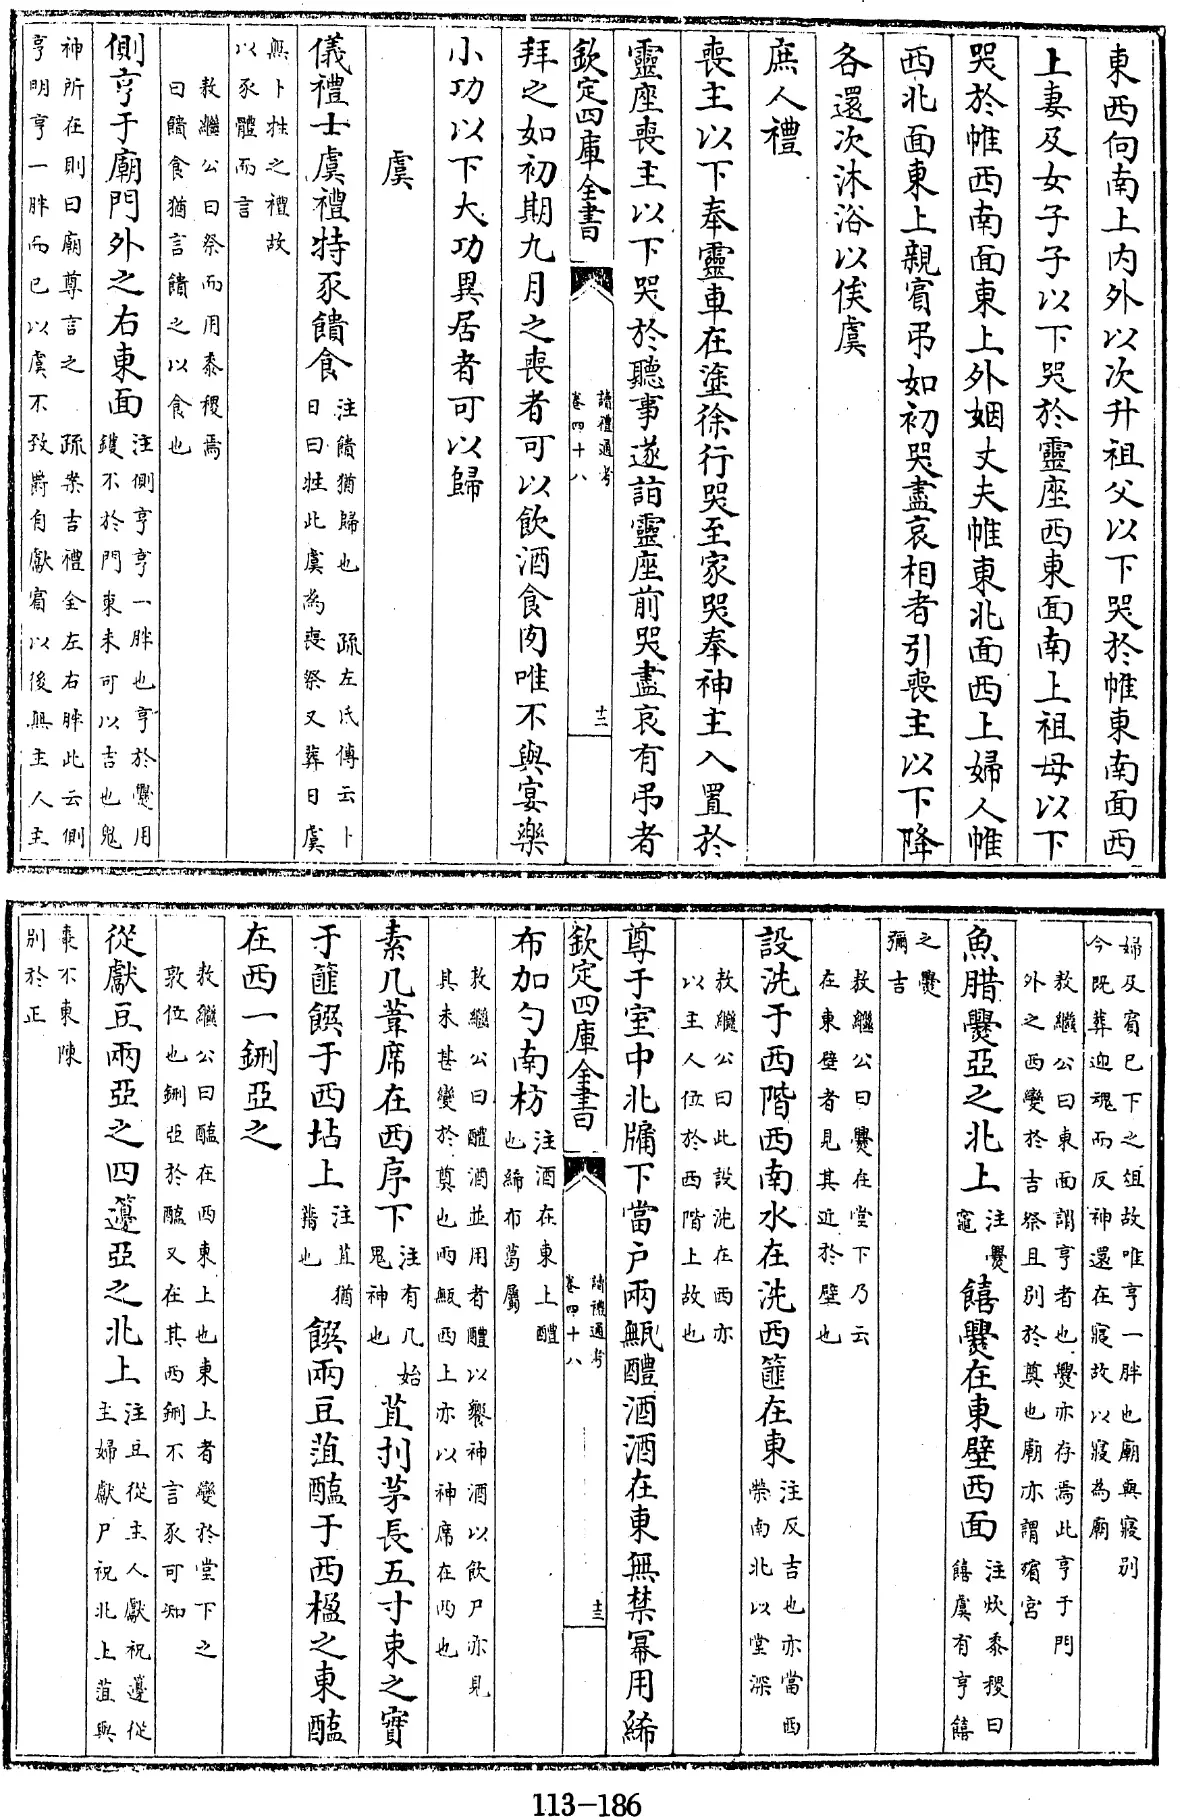 東西向南上内外以次升祖父以下哭於帷東南面西
上妻及女子子以下哭於靈座西東面南上祖母以下
哭於帷西南面東上外姻丈夫帷東北面西上婦人帷
西北面東上親賔弔如初哭盡哀相者引喪主以下降
各還次沐浴以俟虞
庶人禮
喪主以下奉靈車在塗徐行哭至家哭奉神主入置於
靈座喪主以下哭於聽事遂詣靈座前哭盡哀有弔者
欽定四庫全書
讀禮通考
卷四十八
十二
拜之如初期九月之喪者可以飲酒食肉唯不與宴樂
小功以下大功異居者可以歸
虞
儀禮士虞禮特豕饋食
注饋猶歸也 疏左氏傳云卜
日曰牲此虞為喪祭又葬日虞
無卜牲之禮故
以豕體而言
敖繼公曰祭而用黍稷焉
曰饋食猶言饋之以食也
側亨于廟門外之右東面
注側亨亨一胖也亨於爨用
鑊不於門東未可以吉也鬼
神所在則曰廟尊言之 疏案吉禮全左右胖此云側
亨明亨一胖而已以虞不致爵自獻賓以後無主人主
婦及賓已下之俎故唯亨一胖也廟與寢别
今既葬迎魂而反神還在寢故以寢為廟
敖繼公曰東面謂亨者也爨亦存焉此亨于門
外之西變於吉祭且别於奠也廟亦謂殯宮
魚腊爨亞之北上
注爨
竈
饎爨在東壁西面
注炊黍稷曰
饎虞有亨饎
之爨
彌吉
敖繼公曰爨在堂下乃云
在東壁者見其近於壁也
設洗于西階西南水在洗西篚在東
注反吉也亦當西
榮南北以堂深
敖繼公曰此設洗在西亦
以主人位於西階上故也
尊于室中北牖下當户兩甒醴酒酒在東無禁冪用絺
欽定四庫全書
讀禮通考
卷四十八
十三
布加勺南枋
注酒在東上醴
也絺布葛屬
敖繼公曰醴酒並用者醴以饗神酒以飲尸亦見
其未甚變於奠也兩甒西上亦以神席在西也
素几葦席在西序下
注有几始
鬼神也
苴刌茅長五寸束之實
于篚饌于西坫上
注苴猶
藉也
饌兩豆菹醢于西楹之東醢
在西一鉶亞之
敖繼公曰醢在西東上也東上者變於堂下之
敦位也鉶亞於醢又在其西鉶不言豕可知
從獻豆兩亞之四籩亞之北上
注豆從主人獻祝籩從
主婦獻尸祝北上菹與
棗不東陳
别於正
113-186